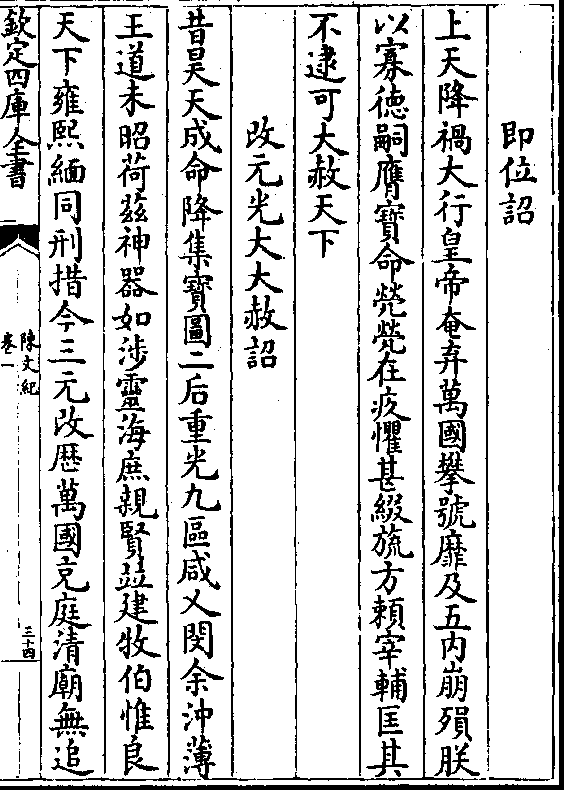 即位詔
上天降禍大行皇帝奄弃萬國攀號靡及五内崩殞朕
以寡德嗣膺寶命煢煢在疚懼甚綴旒方賴宰輔匡其
不逮可大赦天下
改元光大大赦詔
昔昊天成命降集寶圖二后重光九區咸乂閔余沖薄
王道未昭荷兹神器如涉靈海庶親賢竝建牧伯惟良
天下雍熙緬同刑措今三元改歴萬國克庭清廟無追
欽定四庫全書
陳文紀
卷一
三十四